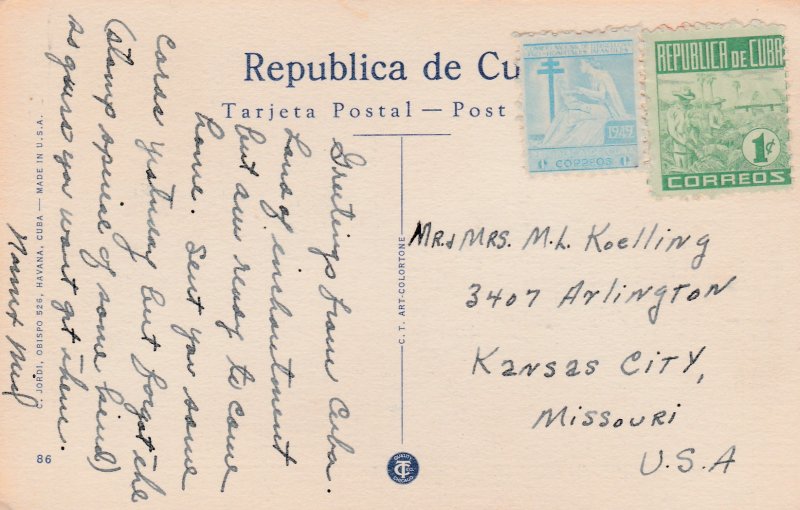 Republica de Cu
Tarjeta Postal — Post
REPUBLICA DE CUBA
1¢
CORREOS
1949
CORREOS
Greetings from Cuba.
Land of enchantment
but am ready to come
home. Sent you some
cards yestuday but forgot the
(stamp special of some kind)
so guess you wont get them.
Mr & Mrs. M.L. Koelling
3407 Arlington
Kansas City,
Missouri
U.S.A
C. JORDI, OBISPO 526, HAVANA, CUBA — MADE IN U.S.A.
C. T. ART-COLORTONE
QUALITY
CT CO.
CHICAGO
86